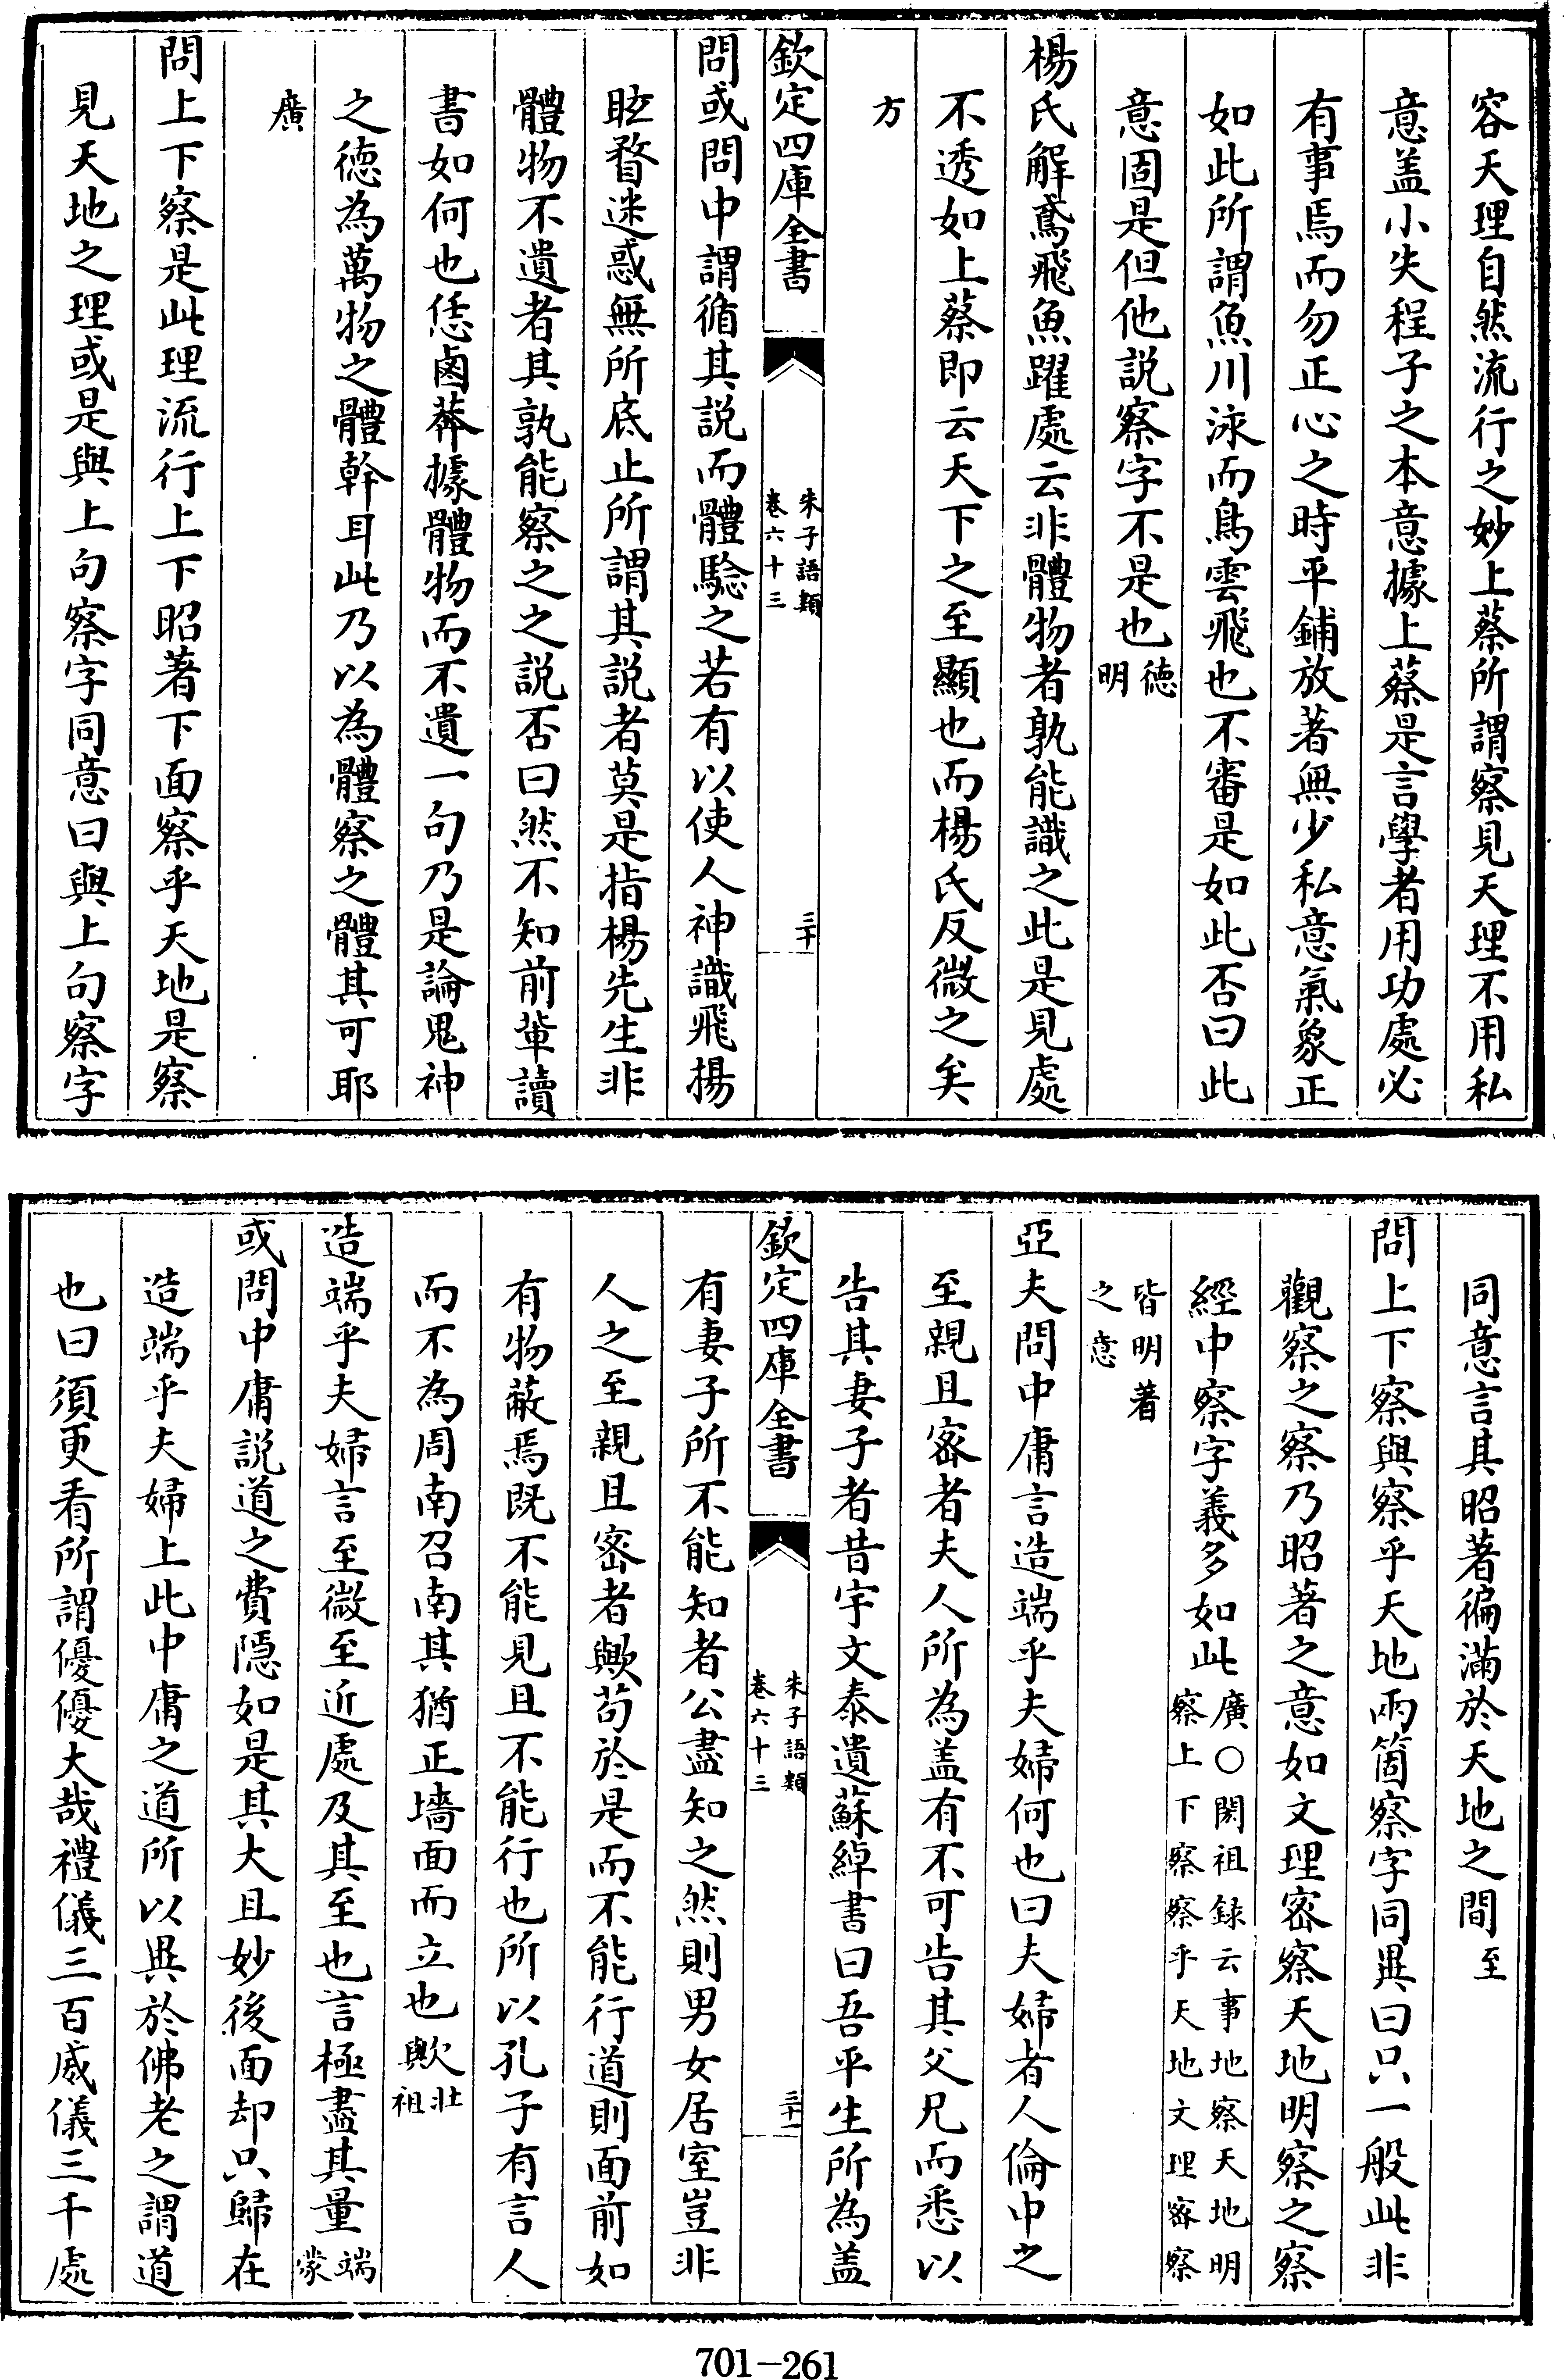 容天理自然流行之妙上蔡所謂察見天理不用私
意盖小失程子之本意據上蔡是言學者用功處必
有事焉而勿正心之時平鋪放著無少私意氣象正
如此所謂魚川泳而鳥雲飛也不審是如此否曰此
意固是但他説察字不是也德
明
楊氏解鳶飛魚躍處云非體物者孰能識之此是見處
不透如上蔡即云天下之至顯也而楊氏反微之矣
方
欽定四庫全書
朱子語類
卷六十三
三十
問或問中謂循其説而體驗之若有以使人神識飛揚
眩瞀迷惑無所底止所謂其説者莫是指楊先生非
體物不遺者其孰能察之之説否曰然不知前輩讀
書如何也恁鹵莽據體物而不遺一句乃是論鬼神
之德為萬物之體幹耳此乃以為體察之體其可耶
廣
問上下察是此理流行上下昭著下面察乎天地是察
見天地之理或是與上句察字同意曰與上句察字
同意言其昭著徧滿於天地之間至
問上下察與察乎天地兩箇察字同異曰只一般此非
觀察之察乃昭著之意如文理密察天地明察之察
經中察字義多如此廣○閎祖録云事地察天地明
察上下察察乎天地文理密察
皆明著
之意
亞夫問中庸言造端乎夫婦何也曰夫婦者人倫中之
至親且密者夫人所為盖有不可告其父兄而悉以
告其妻子者昔宇文泰遺蘇綽書曰吾平生所為盖
欽定四庫全書
朱子語類
卷六十三
三十一
有妻子所不能知者公盡知之然則男女居室豈非
人之至親且密者歟苟於是而不能行道則面前如
有物蔽焉既不能見且不能行也所以孔子有言人
而不為周南召南其猶正墻面而立也歟壯
祖
造端乎夫婦言至微至近處及其至也言極盡其量端
蒙
或問中庸説道之費隱如是其大且妙後面却只歸在
造端乎夫婦上此中庸之道所以異於佛老之謂道
也曰須更看所謂優優大哉禮儀三百威儀三千處
701-261